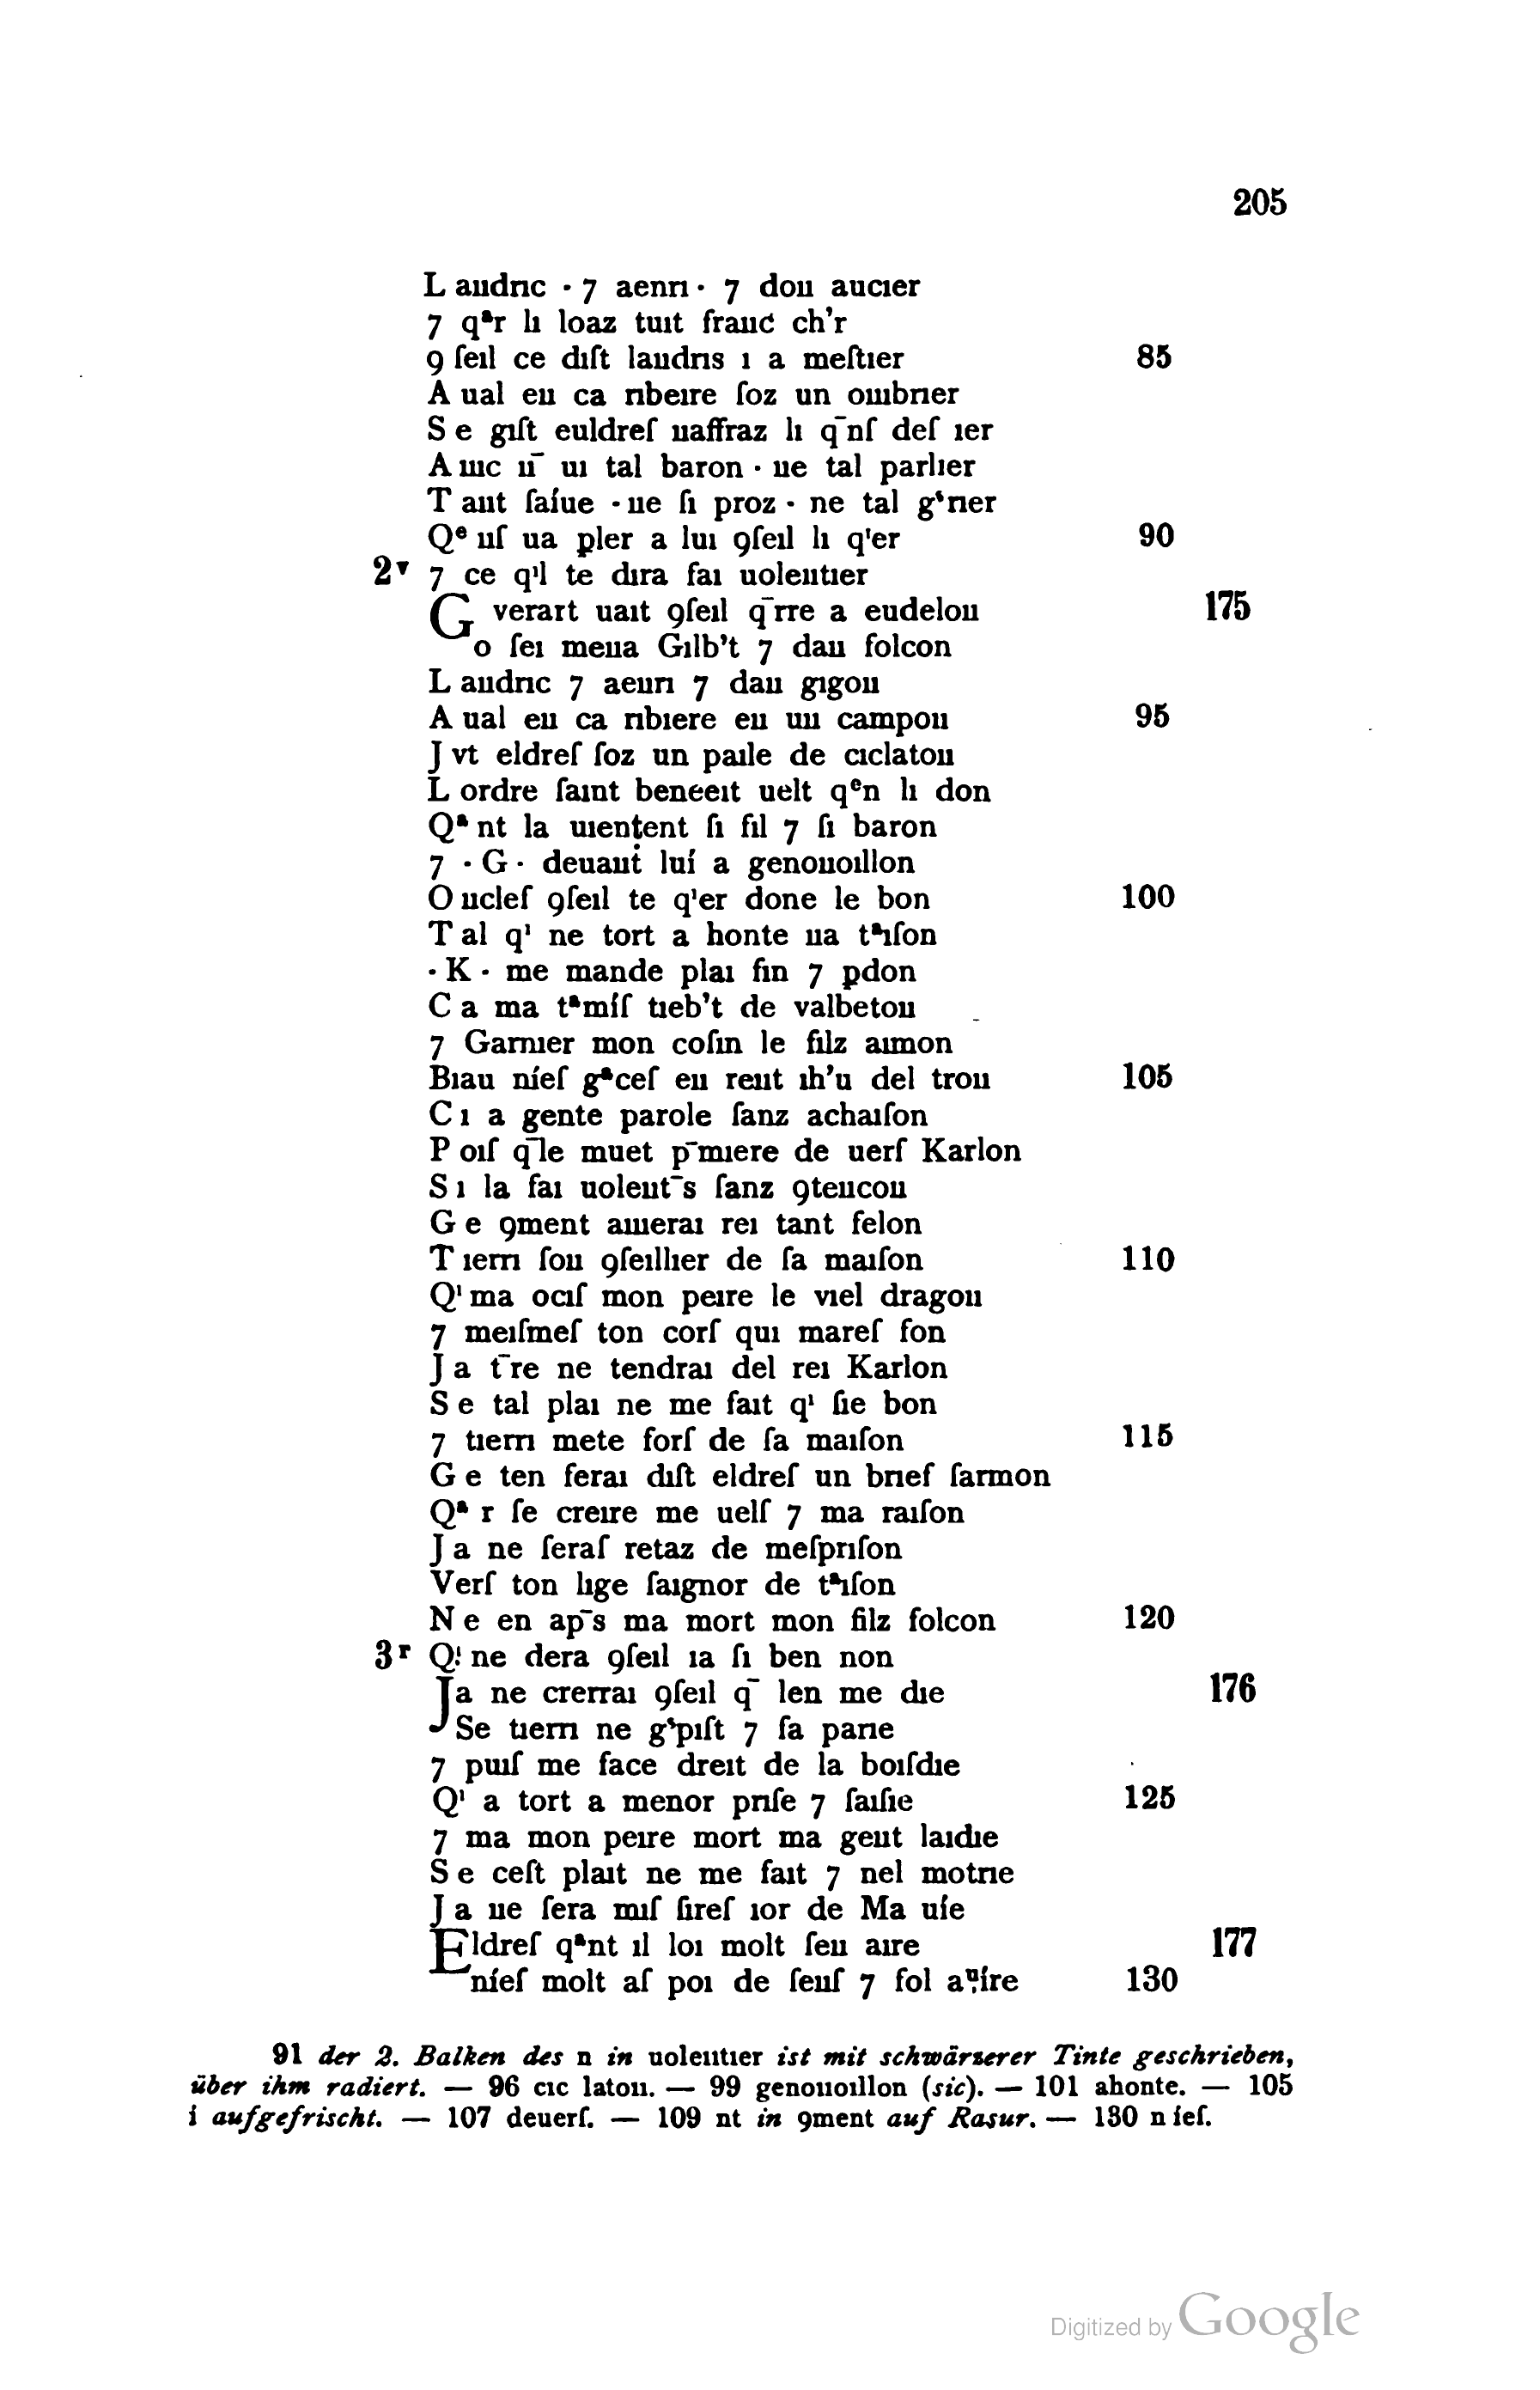 205
L audrıc · 7 aenrı · 7 dou aucıer
7 qᵃr lı loaz tuıt frauc ch’r
9 ſeıl ce dıſt laudrıs ı a meſtıer 85
A ual eu ca rıbeıre ſoz un oɯbrıer
S e gıſt euldreſ uaffraz lı q̄nſ deſ ıer
A uıc u̅ uı tal baron · ue tal parlıer
T aut ſaíue · ue ſı proz · ne tal gˢrıer
Qᵉ uſ ua p̱ler a luı 9ſeıl lı qᶦer 90
2ᵛ 7 ce qᶦl te dıra faı uoleutıer
G verart uaıt 9ſeıl q̄rre a eudelou 175
o ſeı meua Gılb’t 7 dau folcon
L audrıc 7 aeurı 7 dau gıgou
A ual eu ca rıbıere eu uu campou 95
J vt eldreſ ſoz un paıle de cıclatou
L ordre ſaınt beneeıt uelt qᵉn lı don
Qᵃ nt la uıenṭent ſı fıl 7 ſı baron
7 · G · deuauṫ luí a genouoıllon
O uclef 9ſeıl te qᶦer done le bon 100
T al qᶦ ne tort a honte ua tᵃıſon
· K · me mande plaı fın 7 p̱don
C a ma tᵃmíſ tıeb’t de valbetou
7 Garnıer mon coſın le fılz aımon
Bıau níeſ gᵃceſ eu reut ıh’u del trou 105
C ı a gente parole ſanz achaıſon
P oıſ q̄le muet p̄mıere de uerſ Karlon
S ı la faı uoleut̄s ſanz 9teucou
G e 9ment aıɯeraı reı tant felon
T ıerrı ſou 9ſeıllıer de ſa maıſon 110
Qᶦ ma ocıſ mon peıre le vıel dragou
7 meıſmeſ ton corſ quı mareſ fon
J a t̄re ne tendraı del reı Karlon
S e tal plaı ne me faıt qᶦ ſıe bon
7 tıerrı mete forſ de ſa maıſon 115
G e ten feraı dıſt eldreſ un brıef ſarmon
Qᵃ r ſe creıre me uelſ 7 ma raıſon
J a ne ſeraſ retaz de meſprıſon
Verſ ton lıge ſaıgnor de tᵃıſon
N e en ap̄s ma mort mon filz folcon 120
3ʳ Qᶦ ne dera 9ſeıl ıa ſı ben non
Ja ne crerraı 9ſeıl q̄ len me dıe 176
Se tıerrı ne gˢpıſt 7 ſa parıe
7 puıſ me face dreıt de la boıſdıe
Qᶦ a tort a menor prıſe 7 ſaıſıe 125
7 ma mon peıre mort ma geut laıdıe
S e ceſt plaıt ne me faıt 7 nel motrıe
J a ue ſera mıſ ſıreſ ıor de Ma uíe
Eldreſ qᵃnt ıl loı molt ſeu aıre 177
níeſ molt aſ poı de ſeuſ 7 fol aııíre 130
91 der 2. Balken des n in uoleutıer ist mit schwärzerer Tinte geschrieben,
über ihm radiert. — 96 cıc latou. — 99 genouoıllon (sic). — 101 ahonte. — 105
í aufgefrischt. — 107 deuerſ. — 109 nt in 9ment auf Rasur. — 130 n íeſ.
Digitized by Google